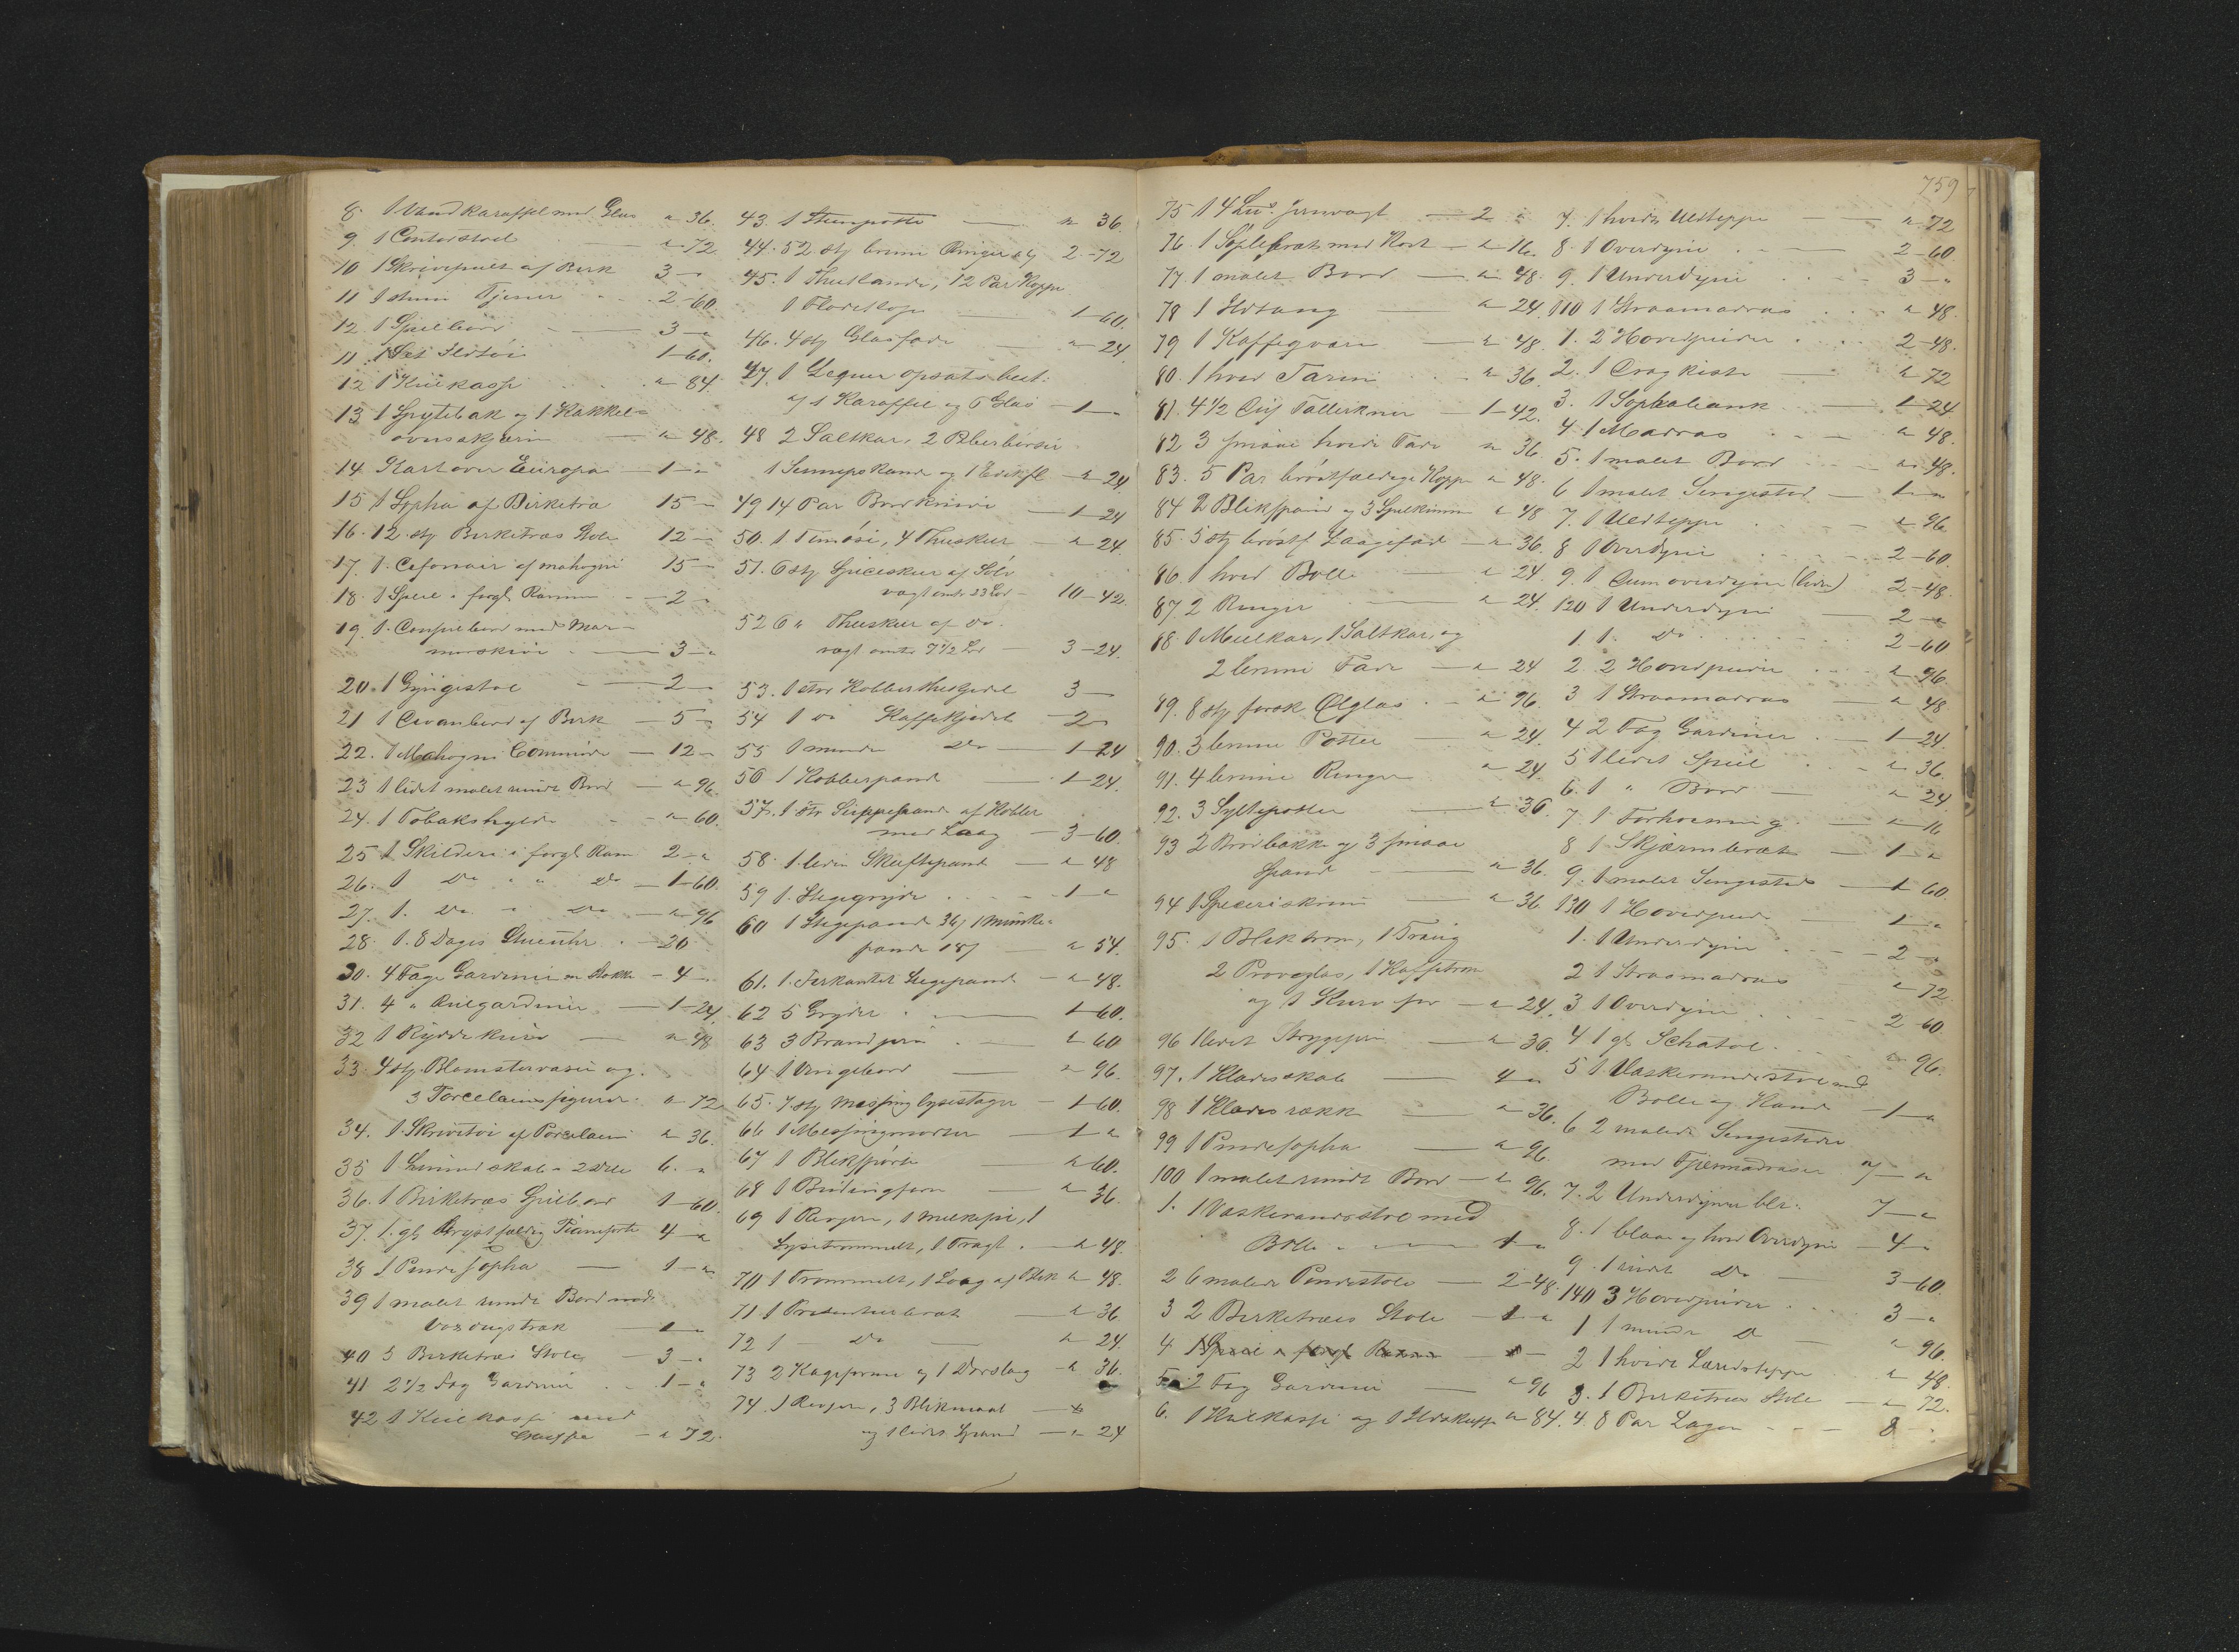 8. 1 Vandkaraffel med Glas " 36.
9. 1 Contorstol " 72
10 1 Skrivepult af Birk 3 - "
11 1 stum Tjener 2-60.
12 1 Speilbord 3 - "
11 1 Sæt Ildtøi 1-60.
12 1 Kulkasse " 84.
13 1 Spyttebak og 1 Kakkel=
ovnsskjærm " 48.
14. Kart over Europa 1 - "
15 1 Sopha af Birketræ 15 - "
16. 12 stk Birketræs Stole 12 - "
17. 1 Cefonair af mahogni 15 - "
18. 1 Speil i forgl. Ramme 2 - "
19. 1 Consolbord med Mar=
morskive 3 - "
20. 1 Gyngestol 2 - "
21 1 Divanbord af Birk 5 - "
22. 1 Mahogni Commode 12 - "
23 1 lidet malet rundt Bord " 96.
24. 1 Tobakshylde " 60.
25 1 Skilderi i forgl. Ram 2 - "
26. 1 Do " " Do 1-60.
27. 1. Do " Do " 96
28. 1. 8 Dages Stueuhr 20
30. 4 Fag Gardiner m Stokke 4 - "
31. 4 " Rulgardiner 1-24.
32 1 Ryddekurv " 48
33. 4 stk Blomstervaser og
3 Porcelainsfigurer " 72
34. 1 Skrivetøi af Porcelain " 36.
35 1 Linnedskab i 2 Dele 6. "
36. 1 Birketræs Spilbord 1-60.
37. 1. gl. brystfældig Pianoforte 4 - "
38 1 Pindesopha 1 - "
39 1 malet rundt Bord med
Voxdugstræk 1 - "
40 3 Birketræs Stole 3 - "
41 2 1/2 Fag Gardiner 1 - "
42 1 Kulkasse med
Skuffe " 72.
43. 1 Steenpotte " 36.
44. 52 stk brune Ringer 2-72
45. 1 Theekande, 12 Par Kopper
1 Flødekop 1-60.
46. 4 stk Glasfade " 24.
47. 1 Liqueur opsats best:
af 1 Karaffel og 6 Glas 1 - "
48 2 Saltkar, 2 Peberbøsser
1 Sennepskande og 1 Edikfl. " 24.
49 14 Par Bordknive 1-24
50. 1 Temøsi, 4 Theskeer " 24.
51. 6 stk Spiseskeer af Sølv
vægt omtr. 23 Lod 10-42.
52 6 " Theskeer af do.
vægt omtr. 7 1/2 Lod 3-24.
53. 1 stor Kobber Theekjedel 3 -
54 1 do Kaffekjedel 2 -
55 1 mindre Do 1-24
56 1 Kobberpande 1-24.
57. 1 stor Suppepande af Kobber
med Laag 3-60.
58. 1 liden Skaftepande " 48
59 1 Stegegryde 1 - "
60 1 Stegepande 36/ 1 Munke=
pande 18/ " 54.
61. 1. Firkantet Stegepande " 48.
62 5 Gryder 1-60.
63 3 Brandjern " 60
64 1 Vingebord " 96.
65. 7 stk Messinglysestager 1-60.
66 1 Messingmorter 1 - "
67 1 Blikspørte " 60.
68 1 Budingform " 36.
69 1 Rivjern, 1 melkesi, 1
Lysetrommel, 1 Tragt " 48.
70 1 Trommel, 1 Laag af Blik " 48.
71 1 Presenteerbræt " 36
72 1 - Do " 24.
73 2 Kageforme og 1 Dørslag " 36.
74. 1 Rivjern, 3 Blikmaal
og 1 lidet Spand " 24
759
75 1 4 Lis. Jernvægt 2 "
76. 1 Søplebræt med Kost " 16.
77 1 malet Bord " 48.
78 1 Ildtang " 24.
79 1 Kaffeqværn " 48.
80. 1 hvid Tarin " 36.
81. 4 1/2 Dus Tallerkner 1-42.
82 3 smaae hvide Fade " 36.
83. 5 Par brøstfældige Kopper " 48.
84 2 Blikspand og 3 Spilkummer " 48
85. 5 stk brøstf. Laagefad " 36.
86. 1 hvid Bolle " 24.
87 2 Ringer " 24.
88 1 Meelkar, 1 Saltkar, og
2 brune Fade " 24
89. 8 stk forsk Ølglas " 96.
90. 3 brune Potter " 24.
91. 4 brune Ringer " 24
92. 3 Syltepotter " 36.
93 2 Brødbakker og 3 smaae
Spand " 36.
94 1 Speceriskrin " 36.
95. 1 Blikkom, 1 Traug
2 Prøveglas, 1
og 1 Kurv " 24.
96 1 lidet Strygejern " 36.
97. 1 Klædeskab 4 "
98 1 Klædesrække " 36.
99 1 Pindesopha " 96.
100 1 malet rundt Bord " 96.
1. 1 Vaskevandsstol med
Bolle 1 "
2 6 malede Pindestole 2-48.
3 2 Birketræes Stole 1 "
4 1 Speil i forgl Ramme
5. 2 Fag Gardiner " 96
6. 1 Kulkasse og 1 Ildskuffe " 84.
7. 1 hvidt Uldteppe " 72
8. 1 Overdyne 2-60.
9. 1 Underdyne 3 - "
110 1 Straamadras " 48.
1. 2 Hovedpuder 2-48.
2. 1 Dragkiste " 72
3. 1 Sophabænk 1-24
4 1 Madras " 48.
5. 1 malet Bord " 48.
6 1 malet Sengested 1 - "
7. 1 Uldteppe " 96
8 1 Overdyne 2-60.
9. 1 Duun overdyne (liden) 2-48.
120 1 Underdyne 2 - "
1. 1. Do 2-60
2. 2 Hovedpuder " 96.
3 1 Straamadras " 48
4 2 Fag Gardiner 1-24.
5 1 lidet Speil " 36.
6. 1 " Bord " 24.
7 1 Forhæning " 16
8 1 Skjærmbræt 1 - "
9. 1 malet Sengested 1 60.
130 1 Hovedpude 1 - "
1. 1 Underdyne 2 - "
2 1 Straamadras " 72
3 1 Overdyne 2 60.
4 1 gl. Schatol " 96.
5 1 Vaskevandsstol med
Bolle og Kande 1 - "
6 2 malede Sengesteder
med Fjermadrasser 7 - "
7. 2 Underdyner 7 - "
8. 1 blaa og hvid Overdyne 4 - "
9. 1 Do 3-60.
140 3 Hovedpuder 3 - "
1 1 mindre D " 96.
2 1 hvidt " 48.
3. 1 Birketræes Stole " 72.
4. 8 Par Lagen 8 "